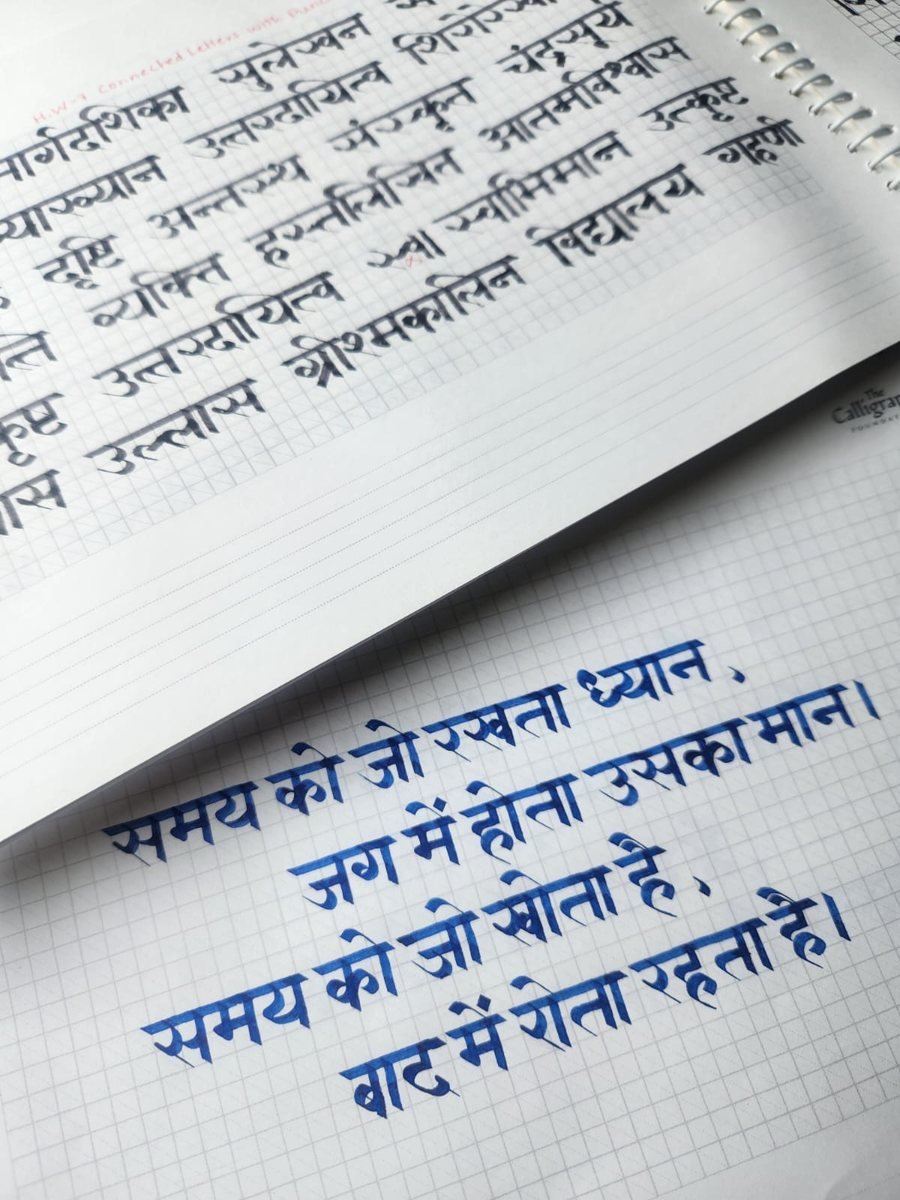 H.W-7 Connected Letters with
मार्गदर्शिका सुलेखन
व्याख्यान उत्तरदायित्व शिरोरेखा
दृष्टि अन्तस्थ संस्कृत चंद्रसूर्य
व्यक्ति हस्तलिखित आत्मविश्वास
उत्तरदायित्व स्वा स्वाभिमान उत्कृष्ट
उल्लास ग्रीश्मकालिन विद्यालय गृहणी
The
Calligra
FOUNDAT
समय को जो रखता ध्यान,
जग में होता उसका मान।
समय को जो खोता है,
बाट में रोता रहता है।